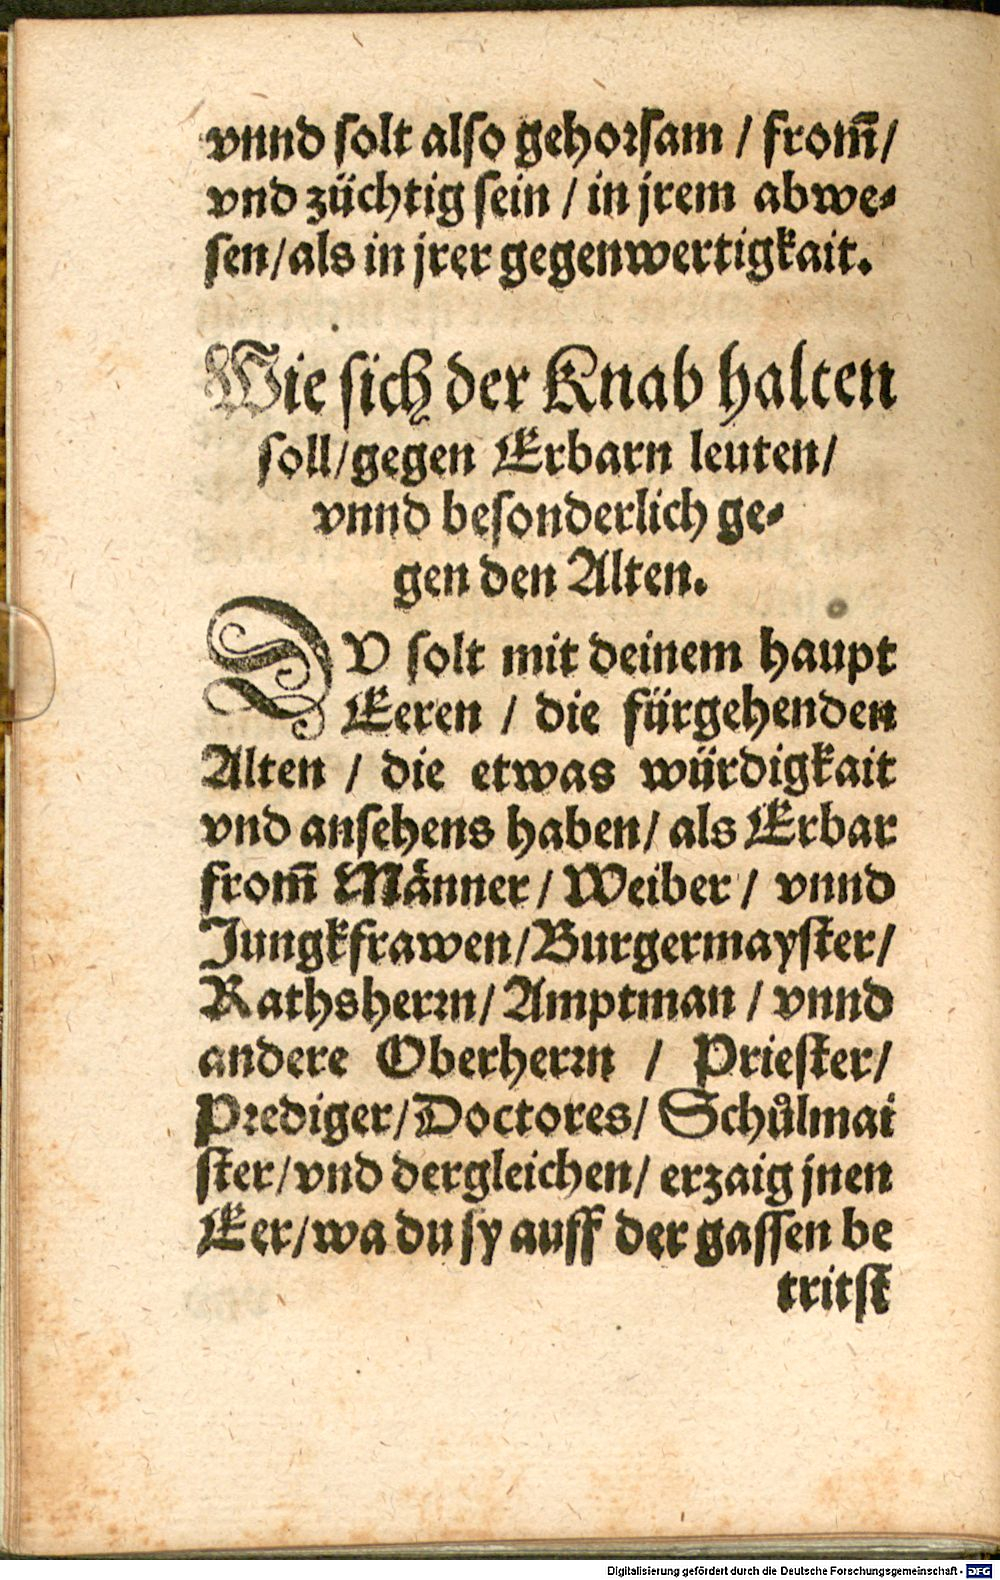 vnnd ſolt alſo gehorſam / from̄ /
vnd züchtig ſein / in jrem abwe-
ſen / als in jrer gegenwertigkait.
Wie ſich der Knab halten
ſoll / gegen Erbarn leuten /
vnnd beſonderlich ge-
gen den Alten.
DV ſolt mit deinem haupt
Eeren / die fürgehenden
Alten / die etwas würdigkait
vnd anſehens haben / als Erbar
from̄ Männer / Weiber / vnnd
Jungkfrawen / Burgermayſter /
Rathsherꝛn / Amptman / vnnd
andere Oberherꝛn / Prieſter /
Pꝛediger / Doctores / Schůlmai
ſter / vnd dergleichen / erzaig jnen
Eer / wa du ſy auff der gaſſen be
tritſt
Digitalisierung gefördert durch die Deutsche Forschungsgemeinschaft - DFG